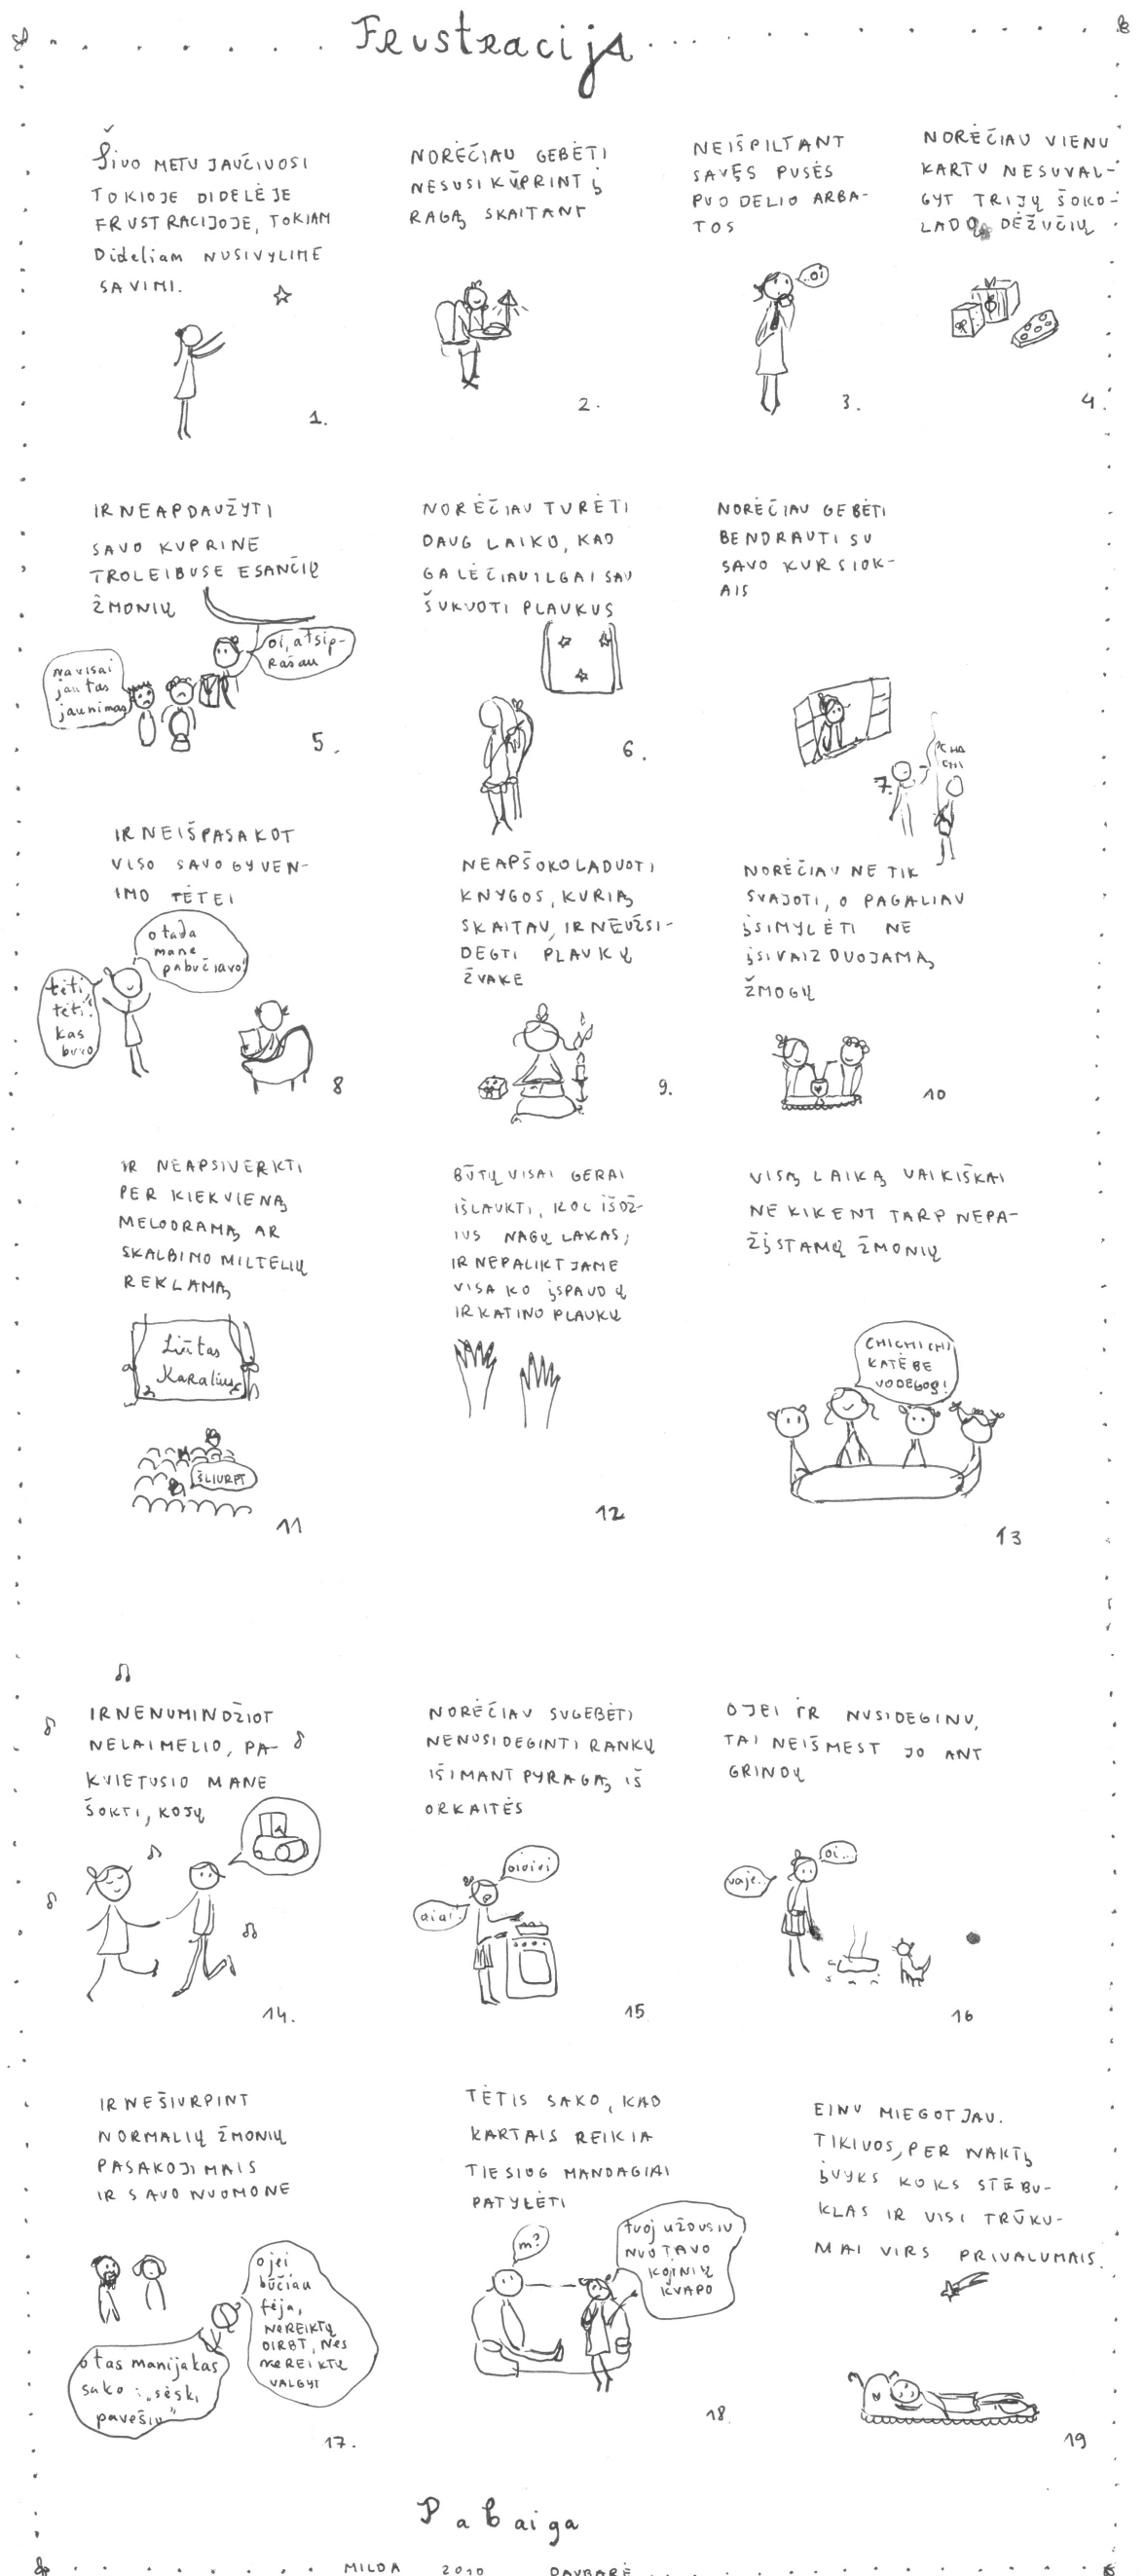 Frustracija
Šiuo METU JAUČIUOSI
TOKIOJE DIDELĖJE
FRUSTRACIJOJE, TOKIAM
Dideliam NUSIVYLIME
SAVIMI.
1.
NORĖČIAU GEBĖTI
NESUSIKŪPRINT Į
RAGĄ SKAITANT
2.
NEIŠPILTANT
SAVĘS PUSĖS
PUODELIO ARBA-
TOS
oi
3.
NORĖČIAU VIENU
KARTU NESUVAL-
GYT TRIJŲ ŠOKO-
LADO DĖŽUČIŲ
4.
IR NEAPDAUŽYTI
SAVO KUPRINE
TROLEIBUSE ESANČIŲ
ŽMONIŲ
oi, atsip-
rašau
na visai
jau tas
jaunimas
5.
NORĖČIAU TURĖTI
DAUG LAIKO, KAD
GALĖČIAU ILGAI SAU
ŠUKUOTI PLAUKUS
6.
NORĖČIAU GEBĖTI
BENDRAUTI SU
SAVO KURSIOK-
AIS
CHA
CHI
7.
IR NEIŠPASAKOT
VISO SAVO GYVEN-
IMO TĖTEI
tėti,
tėti!
kas
buvo
o tada
mane
pabučiavo!
8
NEAPŠOKOLADUOTI
KNYGOS, KURIĄ
SKAITAU, IR NEUŽSI-
DEGTI PLAUKŲ
ŽVAKE
9.
NORĖČIAU NE TIK
SVAJOTI, O PAGALIAU
ĮSIMYLĖTI NE
ĮSIVAIZDUOJAMĄ
ŽMOGŲ
10
IR NEAPSIVERKTI
PER KIEKVIENĄ
MELODRAMĄ AR
SKALBIMO MILTELIŲ
REKLAMĄ
Liūtas
Karalius
ŠLIURPT
11
BŪTŲ VISAI GERAI
IŠLAUKTI, KOL IŠDŽ-
IUS NAGŲ LAKAS,
IR NEPALIKT JAME
VISAKO ĮSPAUDŲ
IR KATINO PLAUKŲ
12
VISĄ LAIKĄ VAIKIŠKAI
NEKIKENT TARP NEPA-
ŽĮSTAMŲ ŽMONIŲ
CHICHICHI
KATĖ BE
VODEGOS!
13
IR NENUMINDŽIOT
NELAIMĖLIO, PA-
KVIETUSIO MANE
ŠOKTI, KOJŲ
14.
NORĖČIAU SUGEBĖTI
NENUSIDEGINTI RANKŲ
IŠIMANT PYRAGĄ IŠ
ORKAITĖS
oioioi
aia!
15
O JEI IR NUSIDEGINU,
TAI NEIŠMEST JO ANT
GRINDŲ
oi...
vaje..
16
IR NEŠIURPINT
NORMALIŲ ŽMONIŲ
PASAKOJIMAIS
IR SAVO NUOMONE
o jei
būčiau
fėja,
NEREIKTŲ
DIRBT, Nes
NEREIKTŲ
VALGYT
o tas manijakas
sako: „sėsk,
pavėšiu"
17.
TĖTIS SAKO, KAD
KARTAIS REIKIA
TIESIOG MANDAGIAI
PATYLĖTI
m?
tuoj uždusiu
NUO TAVO
KOJINIŲ
KVAPO
18.
EINU MIEGOT JAU.
TIKIUOS, PER NAKTĮ
ĮVYKS KOKS STEBU-
KLAS IR VISI TRŪKU-
MAI VIRS PRIVALUMAIS.
19
Pabaiga
MILDA 2010 DAUBARĖ